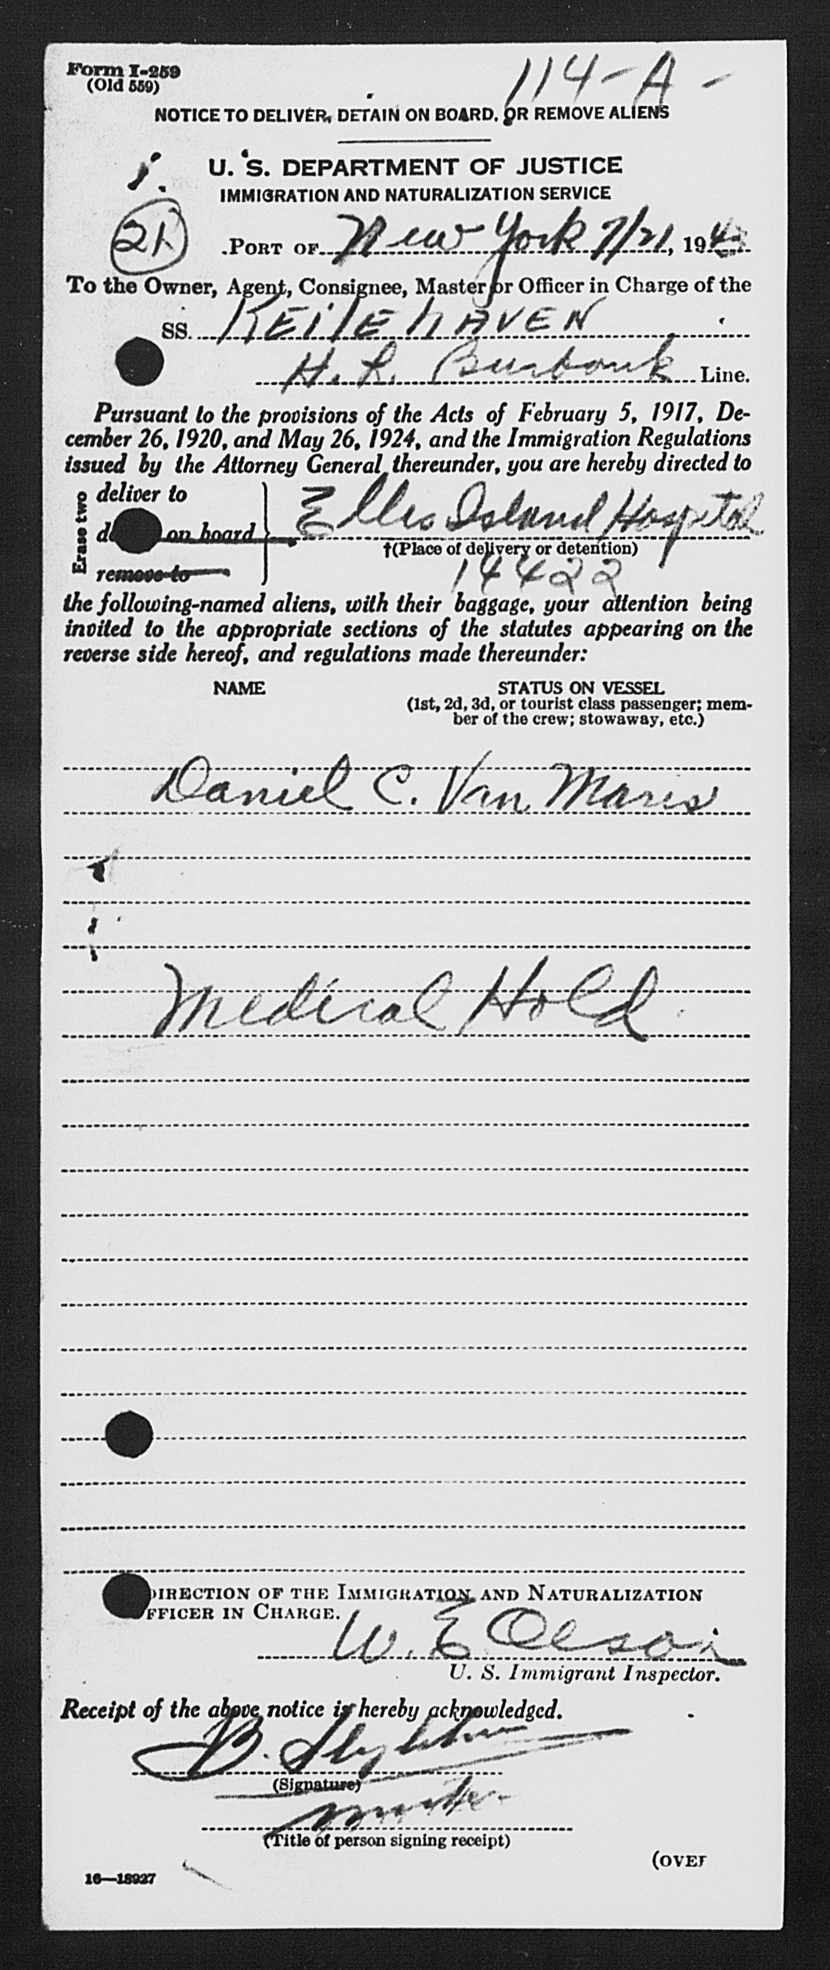 Form I-259
(Old 559)
114-A-
NOTICE TO DELIVER, DETAIN ON BOARD, OR REMOVE ALIENS
U. S. DEPARTMENT OF JUSTICE
IMMIGRATION AND NATURALIZATION SERVICE
21
PORT OF New York 7/21, 194
To the Owner, Agent, Consignee, Master or Officer in Charge of the
SS. KEILEHAVEN
H. L. Burbank Line.
Pursuant to the provisions of the Acts of February 5, 1917, De-
cember 26, 1920, and May 26, 1924, and the Immigration Regulations
issued by the Attorney General thereunder, you are hereby directed to
Erase two
deliver to
d on board
remove to
Ellis Island Hospital
†(Place of delivery or detention)
14422
the following-named aliens, with their baggage, your attention being
invited to the appropriate sections of the statutes appearing on the
reverse side hereof, and regulations made thereunder:
NAME STATUS ON VESSEL
(1st, 2d, 3d, or tourist class passenger; mem-
ber of the crew; stowaway, etc.)
Daniel C. Van Maris
Medical Hold
DIRECTION OF THE IMMIGRATION AND NATURALIZATION
OFFICER IN CHARGE.
W. E. Olson
U. S. Immigrant Inspector.
Receipt of the above notice is hereby acknowledged.
B.
(Signature)
(Title of person signing receipt)
(OVER
16—18927